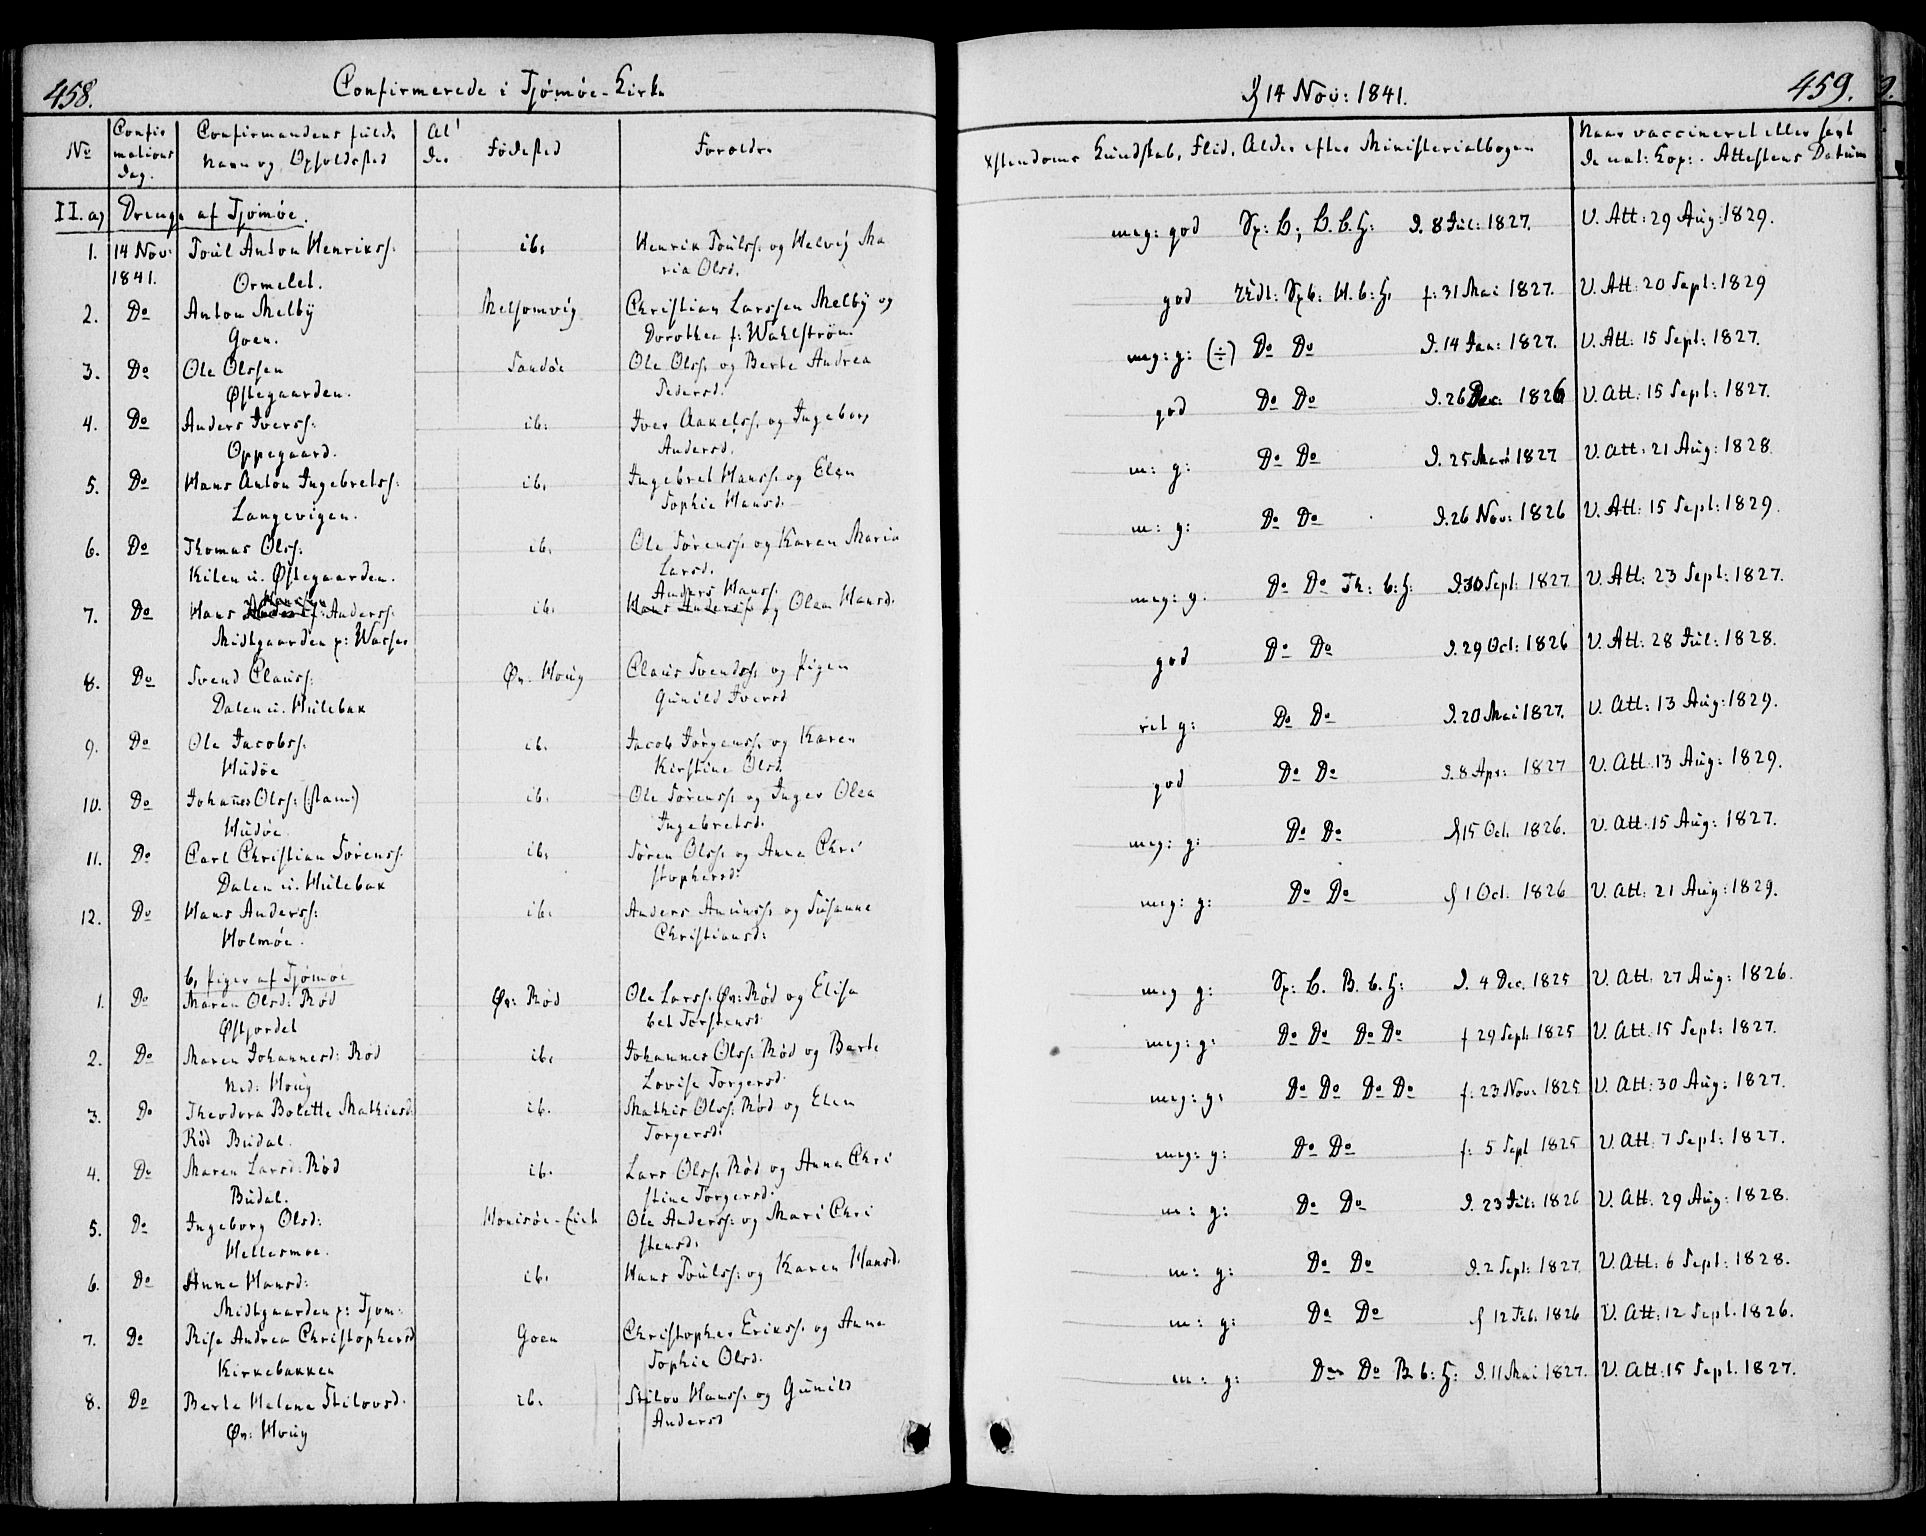 458.
Confirmerede i Tjømøe-Kirke
No
Confirmations Dag.
Confirmandens fulde Navn og Opholdsted
Alder
Fødested
Forældre
II. a) Drenge af Tjømøe.
1. 14 Nov: Poul Anton Henrikss: ib. Henrik Poulss. og Helvig Ma
1841. Ormelet. ria Olsd.
2. Do Anton Melby Melsomvig Christian Larssen Melby og
Goen. Dorothea f: Wahlstrøm.
3. Do Ole Olssen Sandøe Ole Olss. og Berte Andrea
Østegaarden. Pedersd.
4. Do Anders Iverss: ib: Iver Aakelss. og Ingeborg
Oppegaard. Andersd.
5. Do Hans Anton Ingebretss: ib. Ingebret Hanss. og Elen
Langevigen. Sophie Hansd.
6. Do Thomas Olss. ib. Ole Sørenss. og Karen Maria
Kilen u. Østegaarden. Larsd.
Hanssen Anders Hanss.
7. Do Hans f: Anderss: ib. Hans Anderss og Olea Hansd.
Midtgaarden p: Wasser
8. Do Svend Clauss: Øv. Houg Claus Svendss. og Pigen
Dalen u. Hulebak Gunild Iversd
9. Do Ole Jacobss. ib. Jacob Jørgenss. og Karen
Hudøe Kirstine Olsd.
10. Do Johannes Olss: (stam.) ib. Ole Sørenss. og Inger Olea
Hudøe. Ingebretsd.
11. Do Carl Christian Sørenss. ib. Søren Olss. og Anna Chri
Dalen u. Hulebak stophersd.
12. Do Hans Anderss: ib. Anders Amunss. og Susanne
Holmøe. Christiansd:
b, Piger af Tjømøe
1. Do Maren Olsd: Rød Øv: Rød Ole Larss. Øv: Rød og Elisa
Østjordet bet Torstensd.
2. Do Maren Johannesd: Rød ib. Johannes Olss: Rød og Berte
Ned: Houg Lovise Torgersd.
3. Do Theodora Bolette Mathiesd. ib. Mathis Olss. Rød og Elen
Rød Budal. Torgersd:
4. Do Maren Larsd: Rød ib. Lars Olss. Rød og Anna Chri
Budal. stine Torgersd.
5. Do Ingeborg Olsd: Ole Anderss: og Mari Chri
Hellesmoe. stensd.
6. Do Anne Hansd: ib. Hans Poulss: og Karen Hansd.
Midtgaarden p: Tjom:
7. Do Rise Andrea Christophersd Goen Christopher Erikss. og Anne
Kirkebakken Sophie Olsd.
8. Do Berte Helene Stilovsd. ib. Stilov Hanss. og Gunild
Øv: Houg Andersd
459.
d 14 Nov: 1841.
Xstendoms Kundskab, Flid, Alder efter Ministerialbogen
Naar vaccineret eller havt
de nat: Kop: . Attestens Datum
meg: god Sp: C; B. b. H: d. 8 Jul: 1827. V. Att: 29 Aug: 1829.
god Sxb: H. b: H. f: 31 Mai 1827. V. Att: 20 Sept: 1829
meg: g: (÷) Do Do d. 14 Jan: 1827. V. Att: 15 Sept: 1827.
god Do Do d. 26 Dec: 1826 V. Att: 15 Sept: 1827.
m: g: Do Do d. 25 Mars 1827 V. Att: 21 Aug: 1828.
m: g: Do Do d. 26 Nov: 1826 V. Att: 15 Sept: 1829.
meg: g: Do Do Th: b: H: d. 30 Sept: 1827 V. Att: 23 Sept: 1827.
god Do Do d. 29 Oct: 1826 V. Att: 28 Jul: 1828.
ret g: Do Do d. 20 Mai 1827. V. Att: 13 Aug: 1829.
god Do Do d. 8 Apr: 1827 V. Att. 13 Aug: 1829.
meg: g: Do Do d 15 Oct. 1826. V. Att. 15 Aug: 1827.
meg: g: Do Do d 1 Oct. 1826 V. Att: 21 Aug: 1829.
meg g: Sp: C. B. b. H: d. 4 Dec. 1825 V. Att: 27 Aug: 1826.
meg: g: Do Do Do Do f 29 Sept. 1825 V. Att. 15 Sept: 1827.
meg: g: Do Do Do Do f: 23 Nov: 1825 V. Att: 30 Aug: 1827.
meg: g: Do Do f: 5 Sept 1825 V. Att. 7 Sept: 1827.
m: g: Do Do d. 23 Jul: 1826 V. Att. 29 Aug: 1828.
m: g: Do Do d. 2 Sept: 1827. V. Att: 6 Sept: 1828.
m: g: Do Do d 12 Feb. 1826 V. Att: 12 Sept. 1826.
m: g: Do Do B b: H: d. 11 Mai 1827. V. Att: 15 Sept. 1827.